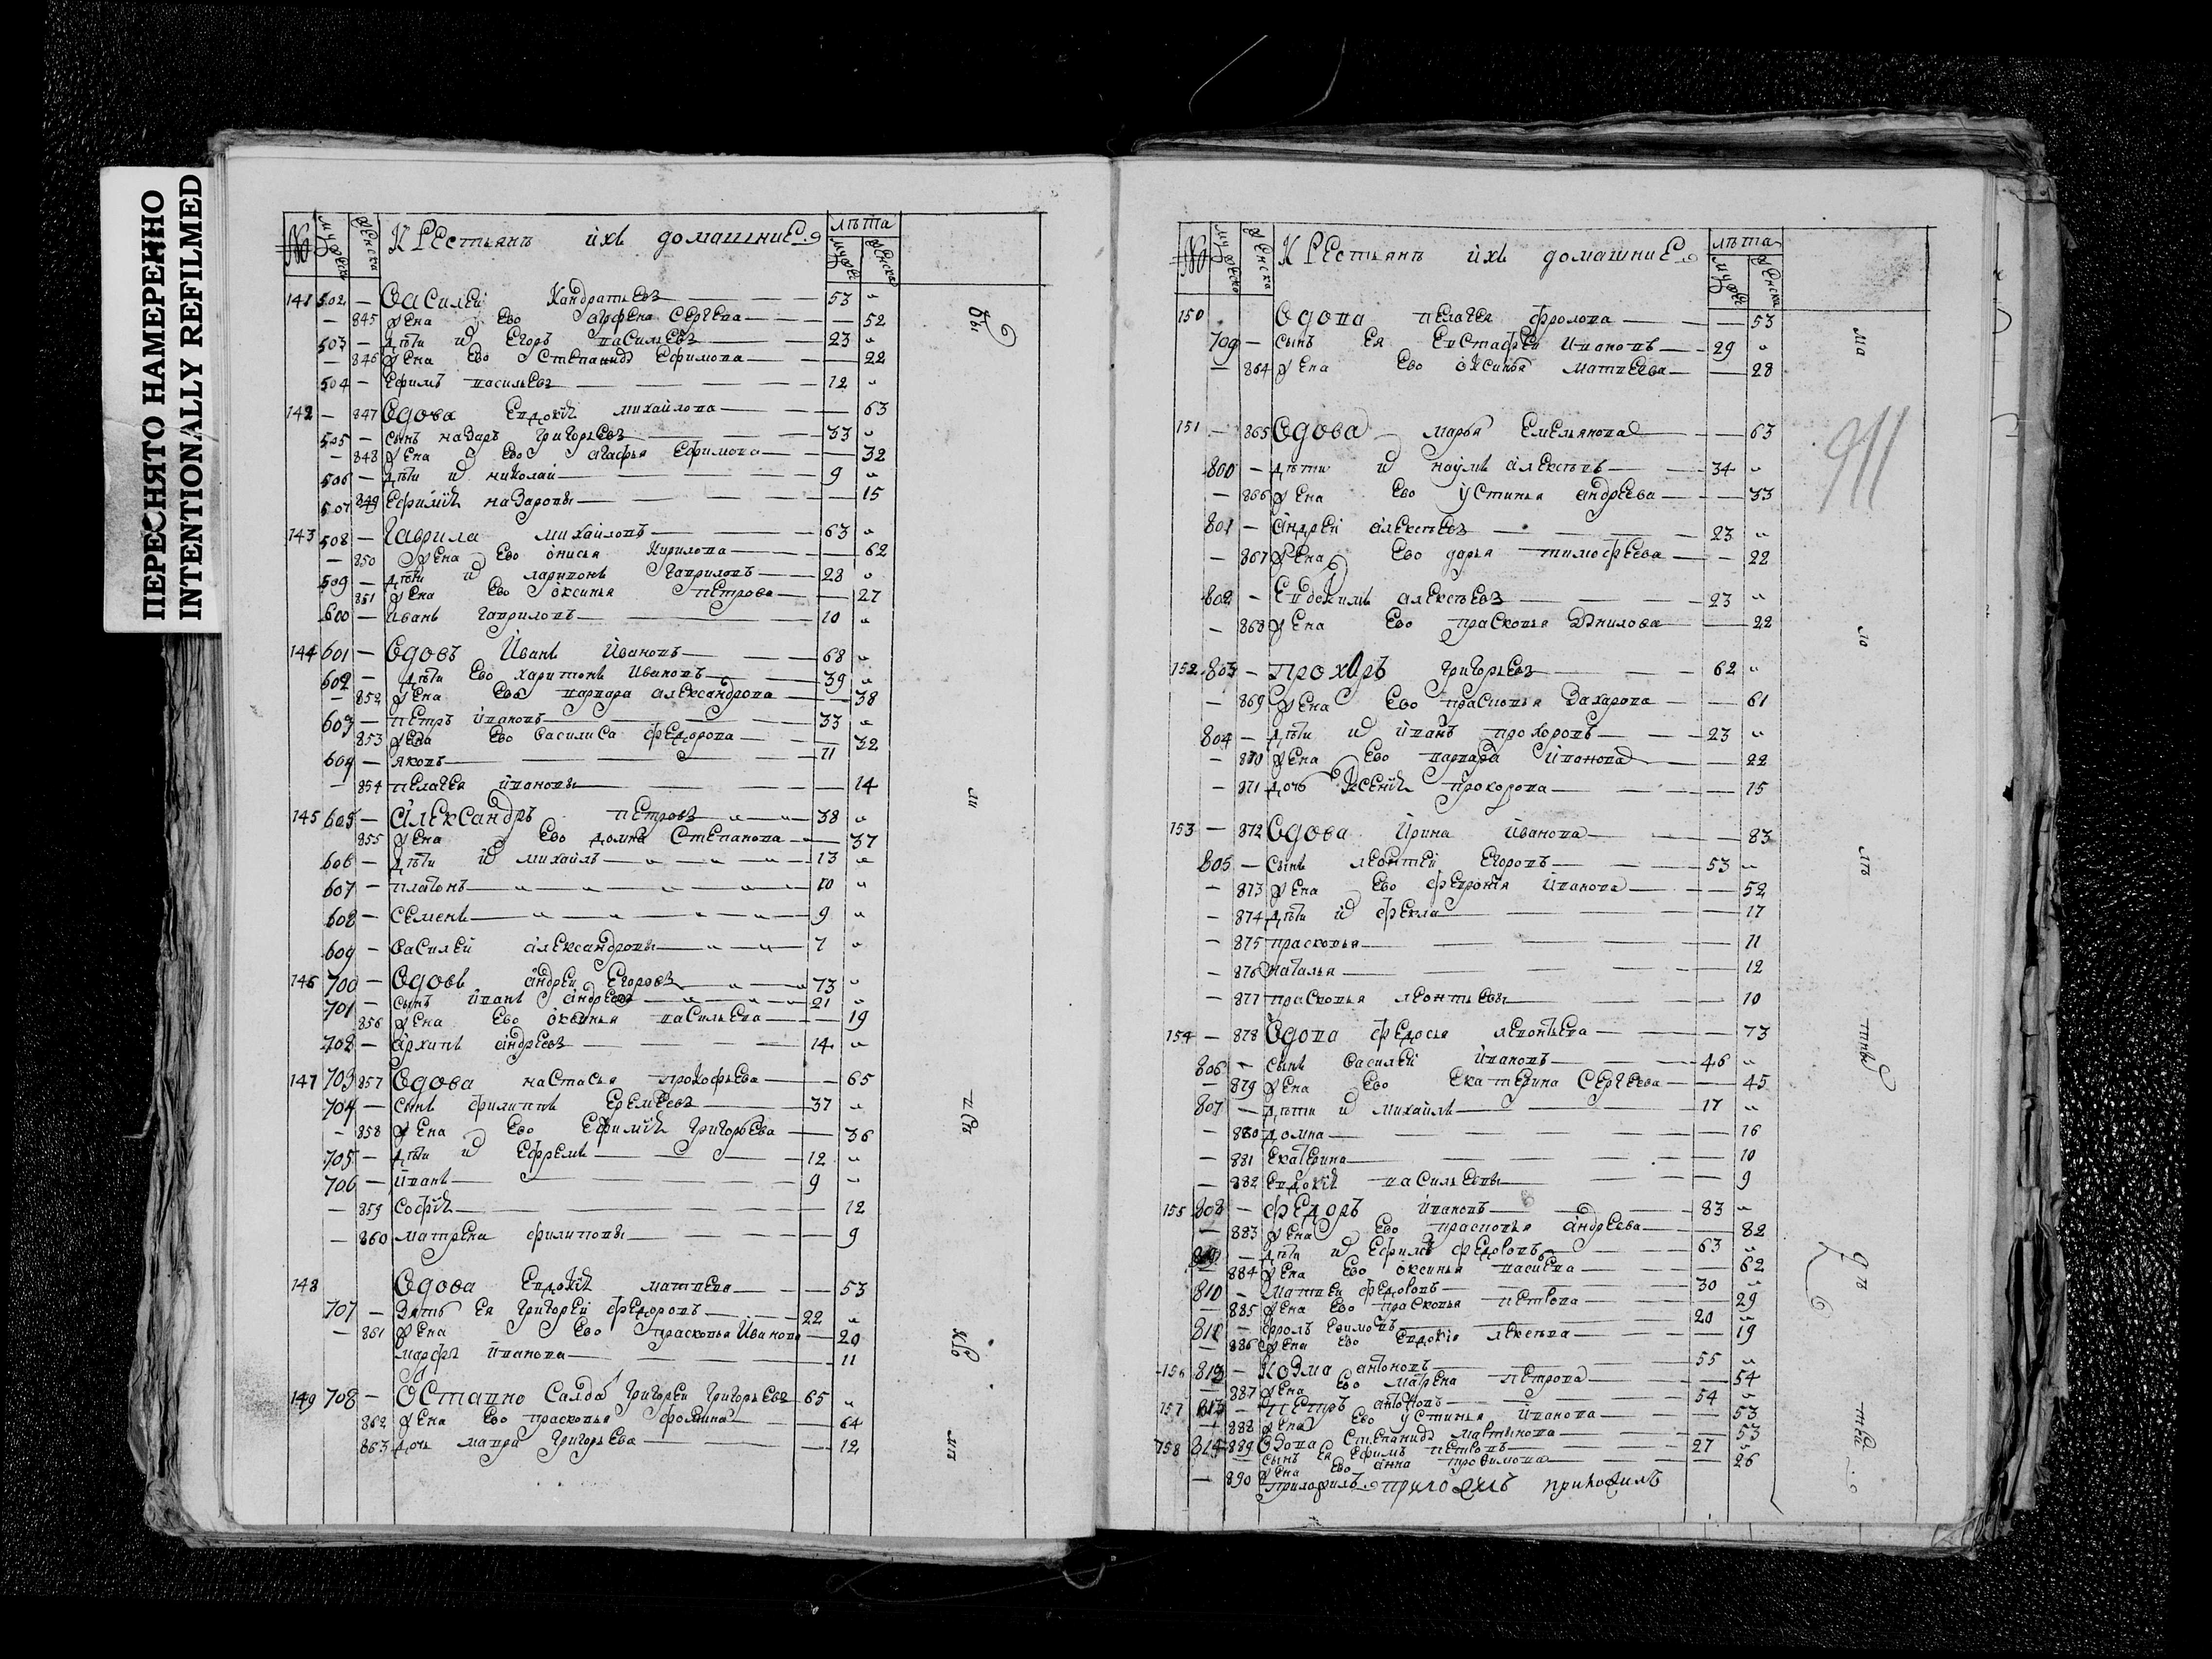 ПЕРЕСНЯТО НАМЕРЕННО
INTENTIONALLY REFILMED
№ мужеска женска Крестьянъ ихъ домашние лѣта мужес женска
141 502 — Василей Кандратьевъ 53 "
— 845 жена ево Арфена Сергева — 52
503 — дѣти и Егоръ васильевъ 23 "
— 846 жена ево Степанида Ефимова — 22
504 — Ефимъ васильевъ 12 "
142 — 847 Вдова Евдокия михайлова — 63
505 — сынъ назаръ григорьевъ 33 "
— 848 жена ево агафья Ефимова — 32
506 — дѣти и николай 9 "
507 849 Ефимия назаровы — 15
143 508 — Гаврила михайловъ 63 "
— 850 жена ево онисья Кирилова — 62
509 — дѣти и ларивонъ гавриловъ 28 "
851 жена ево оксинья петрова — 27
600 — иванъ гавриловъ 10 "
144 601 — Вдовъ Иванъ Ивановъ 68 "
602 — дѣти ево харитонъ Ивановъ 39 "
— 852 жена ево варвара александрова — 38
603 — петръ ивановъ 33 "
853 жена ево василиса федорова — 32
604 — яковъ 11
— 854 пелагея ивановы — 14
145 605 — Александръ петровъ 38 "
855 жена ево домна Степанова — 37
606 — дѣти и михайлъ 13 "
607 — платонъ 10 "
608 — семенъ 9 "
609 — василей александровы 7 "
146 700 — Вдовъ андрей Егоровъ 73 "
701 — сынъ иванъ андреевъ 21 "
856 жена ево оксинья васильева — 19
702 — архипъ андреевъ 14 "
147 703 857 Вдова настасья прокофьева — 65
704 — сынъ филиппъ еремеевъ 37 "
— 858 жена ево Ефимия григорьева — 36
705 — дѣти и Ефремъ 12 "
706 — иванъ 9 "
— 859 софия — 12
— 860 матрена филиповы — 9
148 Вдова Евдокия матвева — 53
707 — зять ея григорей федоровъ 22 "
— 861 жена ево прасковья Иванова — 20
марфа иванова — 11
149 708 — Оставно Салда григореи григорьевъ 65 "
862 жена ево прасковья фомина — 64
863 дочь мавра григорьева — 12
№ мужеско женска Крестьянъ ихъ домашние лѣта мужес женска
150 Вдова пелагея фролова — 53
709 — сынъ ея Евстафей ивановъ 29 "
— 864 жена ево оксинья матвеева — 28
151 — 865 Вдова марья Емельянова — 63
800 — дѣти и наумъ алексѣвъ 34 "
— 866 жена ево устинья андреева — 33
801 — андрей алексѣевъ 23 "
— 867 жена ево дарья тимофеева — 22
802 — Евдокимъ алексѣевъ 23 "
— 868 жена ево прасковья Данилова — 22
152 803 — прохоръ григорьевъ 62 "
— 869 жена ево прасковья захарова — 61
804 — дѣти и иванъ прохоровъ 23 "
— 870 жена ево варвара иванова — 22
— 871 дочь Ксения прохорова — 15
153 — 872 Вдова Ирина Иванова — 83
805 — сынъ леонтей Егоровъ 53 "
— 873 жена ево феврония иванова — 52
— 874 дѣти и фекла — 17
— 875 прасковья — 11
— 876 наталья — 12
— 877 прасковья леонтьевы — 10
154 — 878 Вдова федосья левонтьева — 73
806 — сынъ василей ивановъ 46 "
— 879 жена ево екатерина сергеева — 45
807 — дѣти и михайлъ 17 "
— 880 домна — 16
— 881 екатерина — 10
— 882 евдокия васильевы — 9
155 808 — федоръ ивановъ 83 "
— 883 жена ево прасковья андреева — 82
809 — дѣти и Ефимъ федоровъ 63 "
— 884 жена ево оксинья васиева — 62
810 — матвей федоровъ 30 "
— 885 жена ево прасковья петрова — 29
811 — фролъ ефимовъ 20 "
— 886 жена ево евдокия лексѣва — 19
156 812 — Козма антоновъ 55 "
— 887 жена ево матрена петрова — 54
157 813 — петръ антоновъ 54 "
— 888 жена ево устинья иванова — 53
158 814 889 Вдова степанида мартынова — 53
— сынъ ея ефимъ петровъ 27 "
— 890 жена ево анна трофимова — 26
911